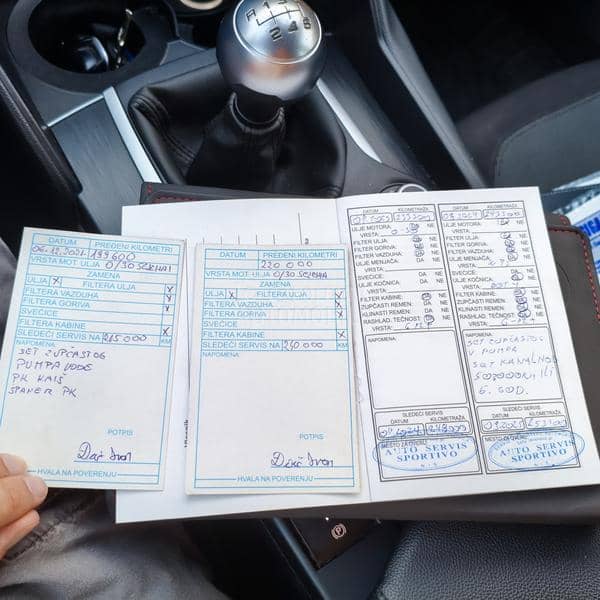 R 1 3 5
2 4
DATUM PREĐENI KILOMETRI
06.12.2021. 199600
VRSTA MOT. ULJA 0/30 SELENIA
ZAMENA
ULJA X FILTERA ULJA X
FILTERA VAZDUHA X
FILTERA GORIVA X
SVEĆICE
FILTERA KABINE X
SLEDEĆI SERVIS NA 215.000 KM
NAPOMENA:
SET ZUPČASTOG
PUMPA VODE
PK KAIŠ
ŠPANER PK
POTPIS
HVALA NA POVERENJU
DATUM PREĐENI KILOMETRI
220 000
VRSTA MOT. ULJA 0/30 SELENIA
ZAMENA
ULJA X FILTERA ULJA X
FILTERA VAZDUHA X
FILTERA GORIVA X
SVEĆICE
FILTERA KABINE X
SLEDEĆI SERVIS NA 240.000 KM
NAPOMENA:
POTPIS
HVALA NA POVERENJU
DATUM KILOMETRAŽA
ULJE MOTORA: DA NE
VRSTA:
FILTER ULJA: DA NE
FILTER GORIVA: DA NE
FILTER VAZDUHA: DA NE
ULJE MENJAČA: DA NE
VRSTA:
SVEĆICE: DA NE
ULJE KOČNICA: DA NE
VRSTA:
FILTER KABINE: DA NE
ZUPČASTI REMEN: DA NE
KLINASTI REMEN: DA NE
RASHLAD. TEČNOST: DA NE
VRSTA:
NAPOMENA:
SLEDEĆI SERVIS
DATUM KILOMETRAŽA
MESTO ZA OVERU
AUTO SERVIS
SPORTIVO
DATUM KILOMETRAŽA
ULJE MOTORA: DA NE
VRSTA:
FILTER ULJA: DA NE
FILTER GORIVA: DA NE
FILTER VAZDUHA: DA NE
ULJE MENJAČA: DA NE
VRSTA:
SVEĆICE: DA NE
ULJE KOČNICA: DA NE
VRSTA:
FILTER KABINE: DA NE
ZUPČASTI REMEN: DA NE
KLINASTI REMEN: DA NE
RASHLAD. TEČNOST: DA NE
VRSTA:
NAPOMENA:
SET ZUPČASTOG
V PUMPA
SET KANALNOG
ILI
5. GOD.
SLEDEĆI SERVIS
DATUM KILOMETRAŽA
MESTO ZA OVERU
AUTO SERVIS
SPORTIVO
P